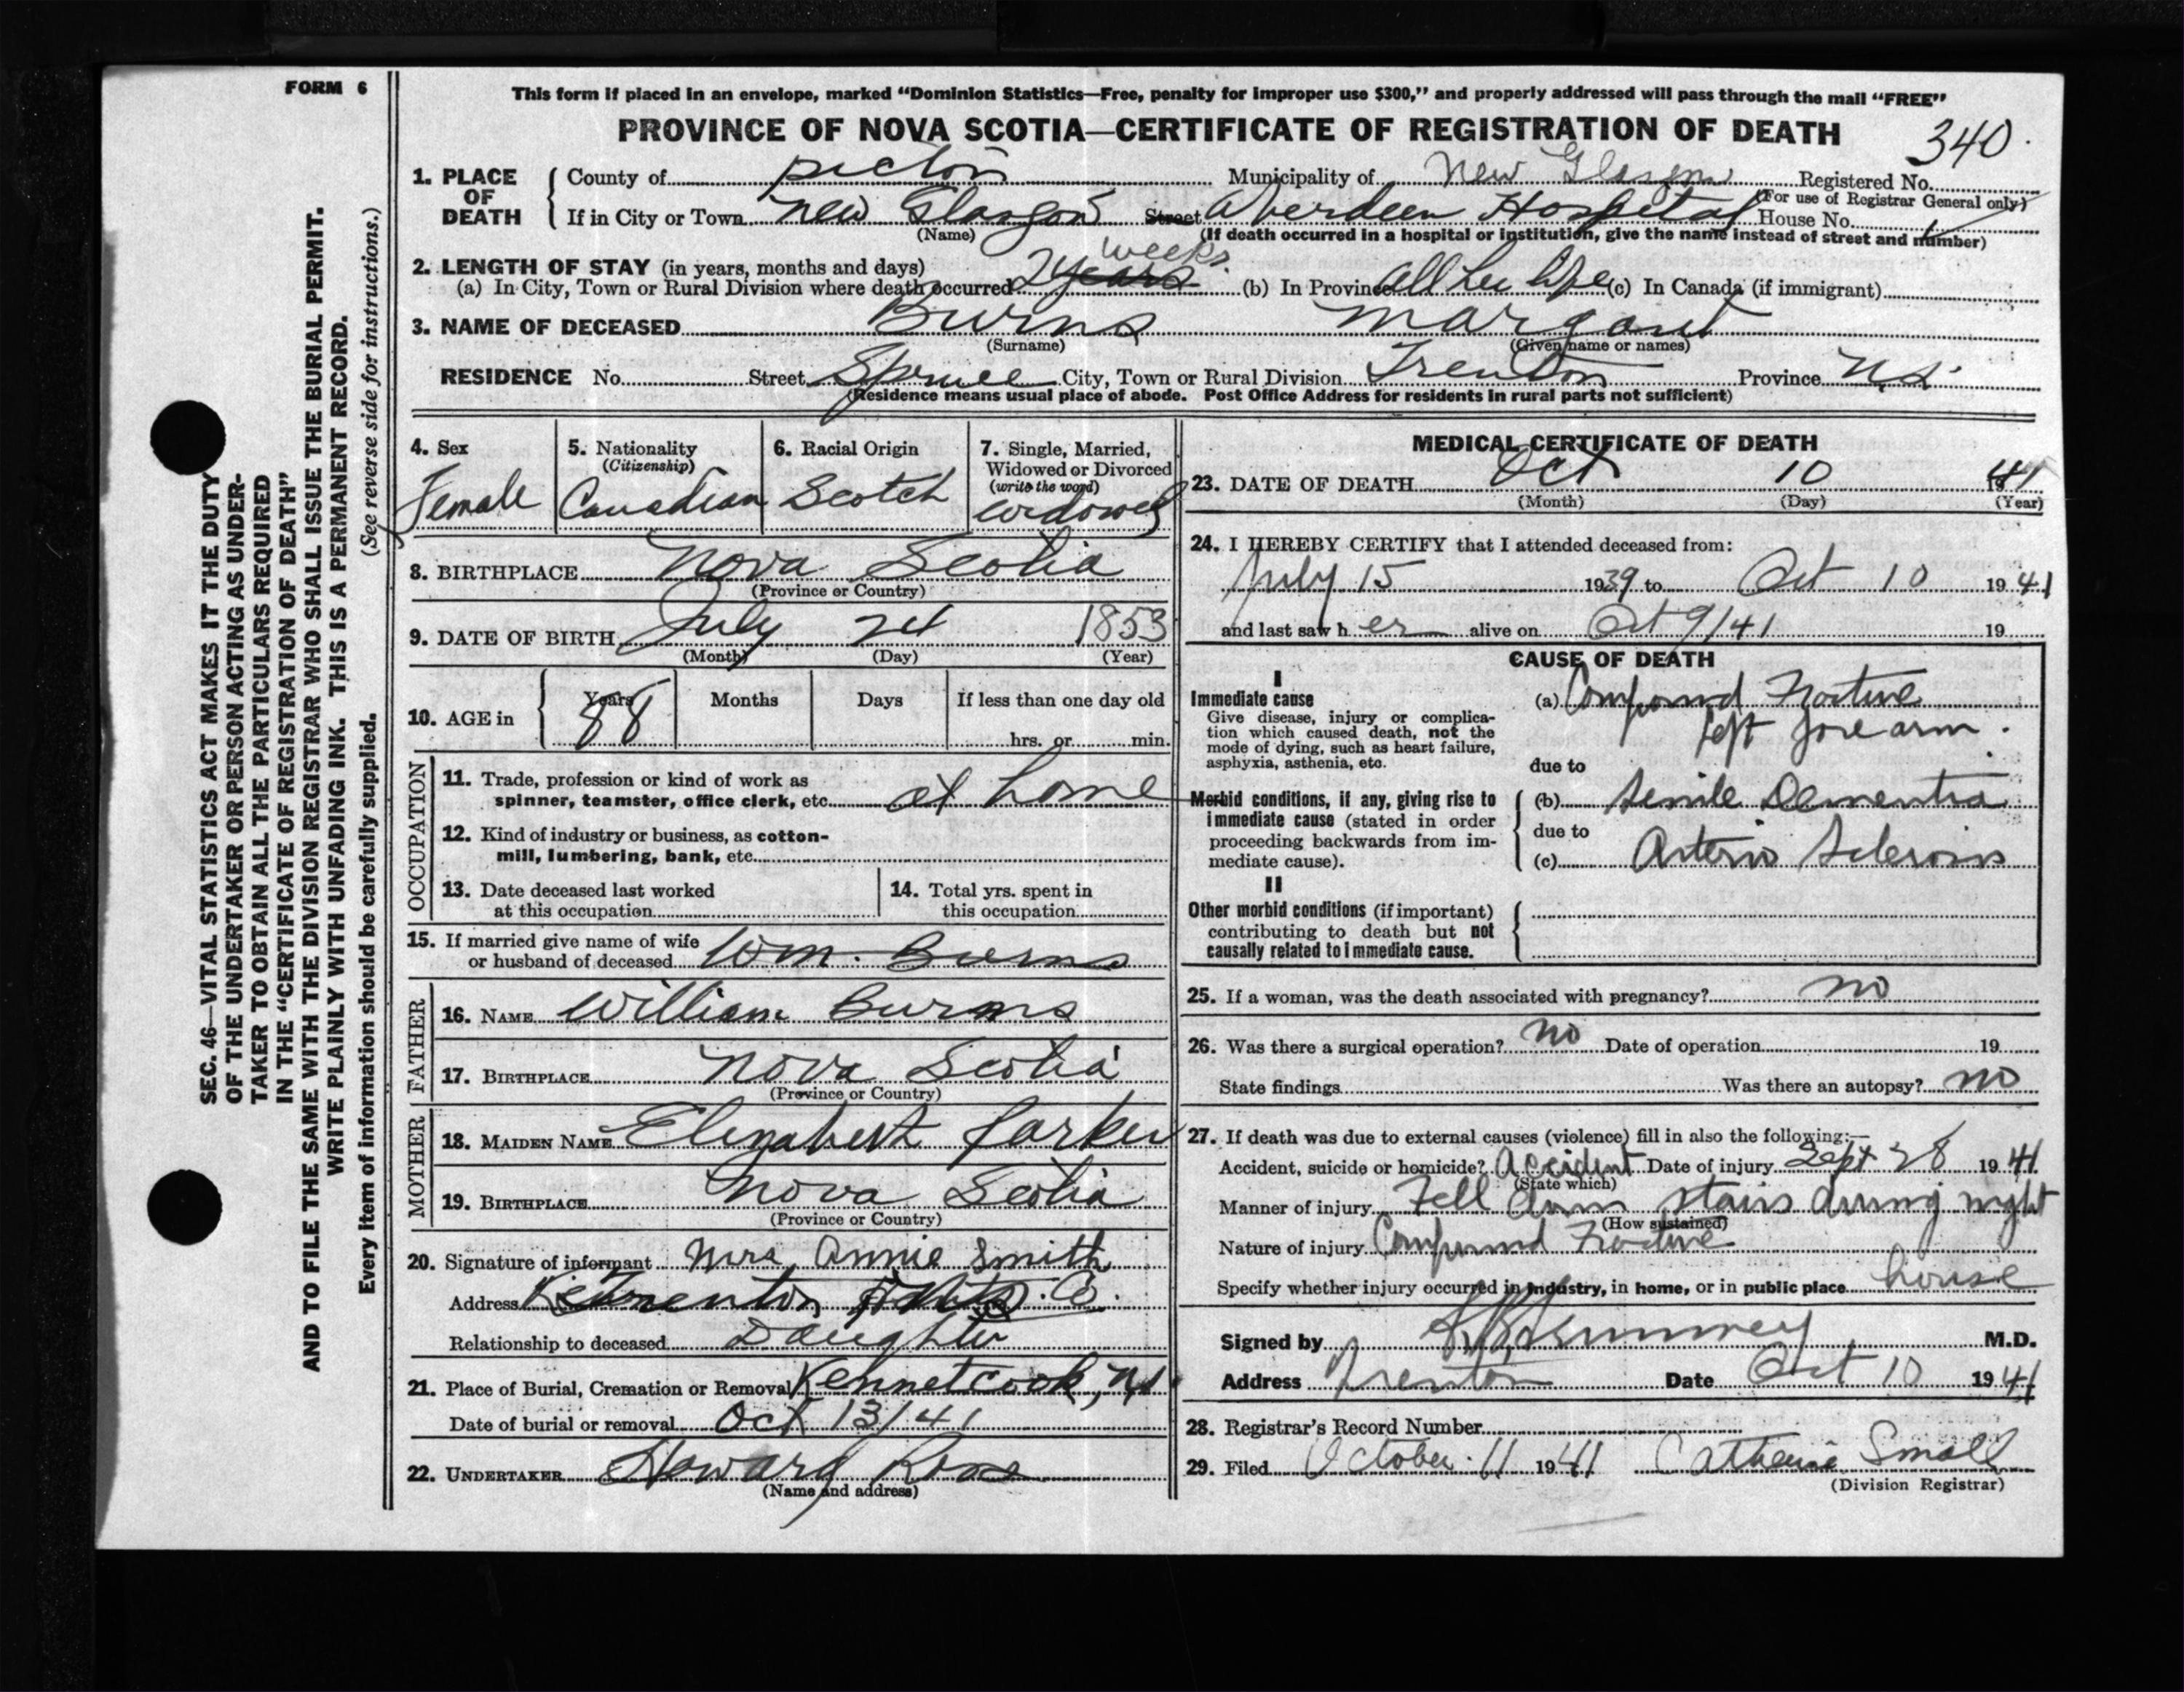 FORM 6
This form if placed in an envelope, marked "Dominion Statistics—Free, penalty for improper use $300," and properly addressed will pass through the mail "FREE"
PROVINCE OF NOVA SCOTIA—CERTIFICATE OF REGISTRATION OF DEATH
340.
1. PLACE OF DEATH
County of Pictou Municipality of New Glasgow Registered No.
(For use of Registrar General only)
If in City or Town New Glasgow Street Aberdeen Hospital House No.
(Name) (If death occurred in a hospital or institution, give the name instead of street and number)
2. LENGTH OF STAY (in years, months and days) weeks.
(a) In City, Town or Rural Division where death occurred 2 years (b) In Province All her life (c) In Canada (if immigrant)
3. NAME OF DECEASED Burns Margaret
(Surname) (Given name or names)
RESIDENCE No. Street Spruce City, Town or Rural Division Trenton Province N.S.
(Residence means usual place of abode. Post Office Address for residents in rural parts not sufficient)
SEC. 46—VITAL STATISTICS ACT MAKES IT THE DUTY
OF THE UNDERTAKER OR PERSON ACTING AS UNDER-
TAKER TO OBTAIN ALL THE PARTICULARS REQUIRED
IN THE "CERTIFICATE OF REGISTRATION OF DEATH"
AND TO FILE THE SAME WITH THE DIVISION REGISTRAR WHO SHALL ISSUE THE BURIAL PERMIT.
WRITE PLAINLY WITH UNFADING INK. THIS IS A PERMANENT RECORD.
Every item of information should be carefully supplied. (See reverse side for instructions.)
4. Sex
Female
5. Nationality
(Citizenship)
Canadian
6. Racial Origin
Scotch
7. Single, Married,
Widowed or Divorced
(write the word)
Widowed
8. BIRTHPLACE Nova Scotia
(Province or Country)
9. DATE OF BIRTH July 24 1853
(Month) (Day) (Year)
10. AGE in Years Months Days If less than one day old
88 hrs. or min.
OCCUPATION
11. Trade, profession or kind of work as
spinner, teamster, office clerk, etc. at home
12. Kind of industry or business, as cotton-
mill, lumbering, bank, etc.
13. Date deceased last worked
at this occupation
14. Total yrs. spent in
this occupation
15. If married give name of wife
or husband of deceased Wm. Burns
FATHER
16. NAME William Burns
17. BIRTHPLACE Nova Scotia
(Province or Country)
MOTHER
18. MAIDEN NAME Elizabeth Parker
19. BIRTHPLACE Nova Scotia
(Province or Country)
20. Signature of informant Mrs. Annie Smith
Address Co.
Relationship to deceased Daughter
21. Place of Burial, Cremation or Removal Kennetcook, NS
Date of burial or removal Oct 13/41
22. UNDERTAKER Howard Ross
(Name and address)
MEDICAL CERTIFICATE OF DEATH
23. DATE OF DEATH Oct 10 1941
(Month) (Day) (Year)
24. I HEREBY CERTIFY that I attended deceased from:
July 15 1939 to Oct 10 1941
and last saw her alive on Oct 9/41 19
CAUSE OF DEATH
I
Immediate cause
Give disease, injury or complica-
tion which caused death, not the
mode of dying, such as heart failure,
asphyxia, asthenia, etc.
(a) Compound Fracture
left forearm.
due to
Morbid conditions, if any, giving rise to
immediate cause (stated in order
proceeding backwards from im-
mediate cause).
(b) Senile Dementia
due to
(c) Arterio Sclerosis
II
Other morbid conditions (if important)
contributing to death but not
causally related to immediate cause.
25. If a woman, was the death associated with pregnancy? no
26. Was there a surgical operation? no Date of operation 19
State findings Was there an autopsy? no
27. If death was due to external causes (violence) fill in also the following:—
Accident, suicide or homicide? Accident Date of injury Sept 28 1941
(State which)
Manner of injury Fell down stairs during night
(How sustained)
Nature of injury Compound Fracture
Specify whether injury occurred in industry, in home, or in public place house
Signed by M.D.
Address Trenton Date Oct 10 1941
28. Registrar's Record Number
29. Filed October 11 1941 Catherine Small
(Division Registrar)